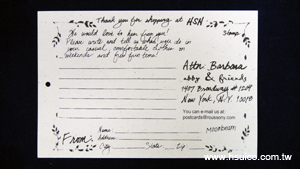 Thank you for shopping at HSN
We would love to hear from you!
Please write and tell us what you do in
your casual, comfortable clothes on
weekends and free time!
Stamp
Attn: Barbara
& Friends
1407 Broadway #
New York, N.Y. 10018
You can e-mail us at:
From:
Name
Address
City State Zip
www.nsale.com.tw